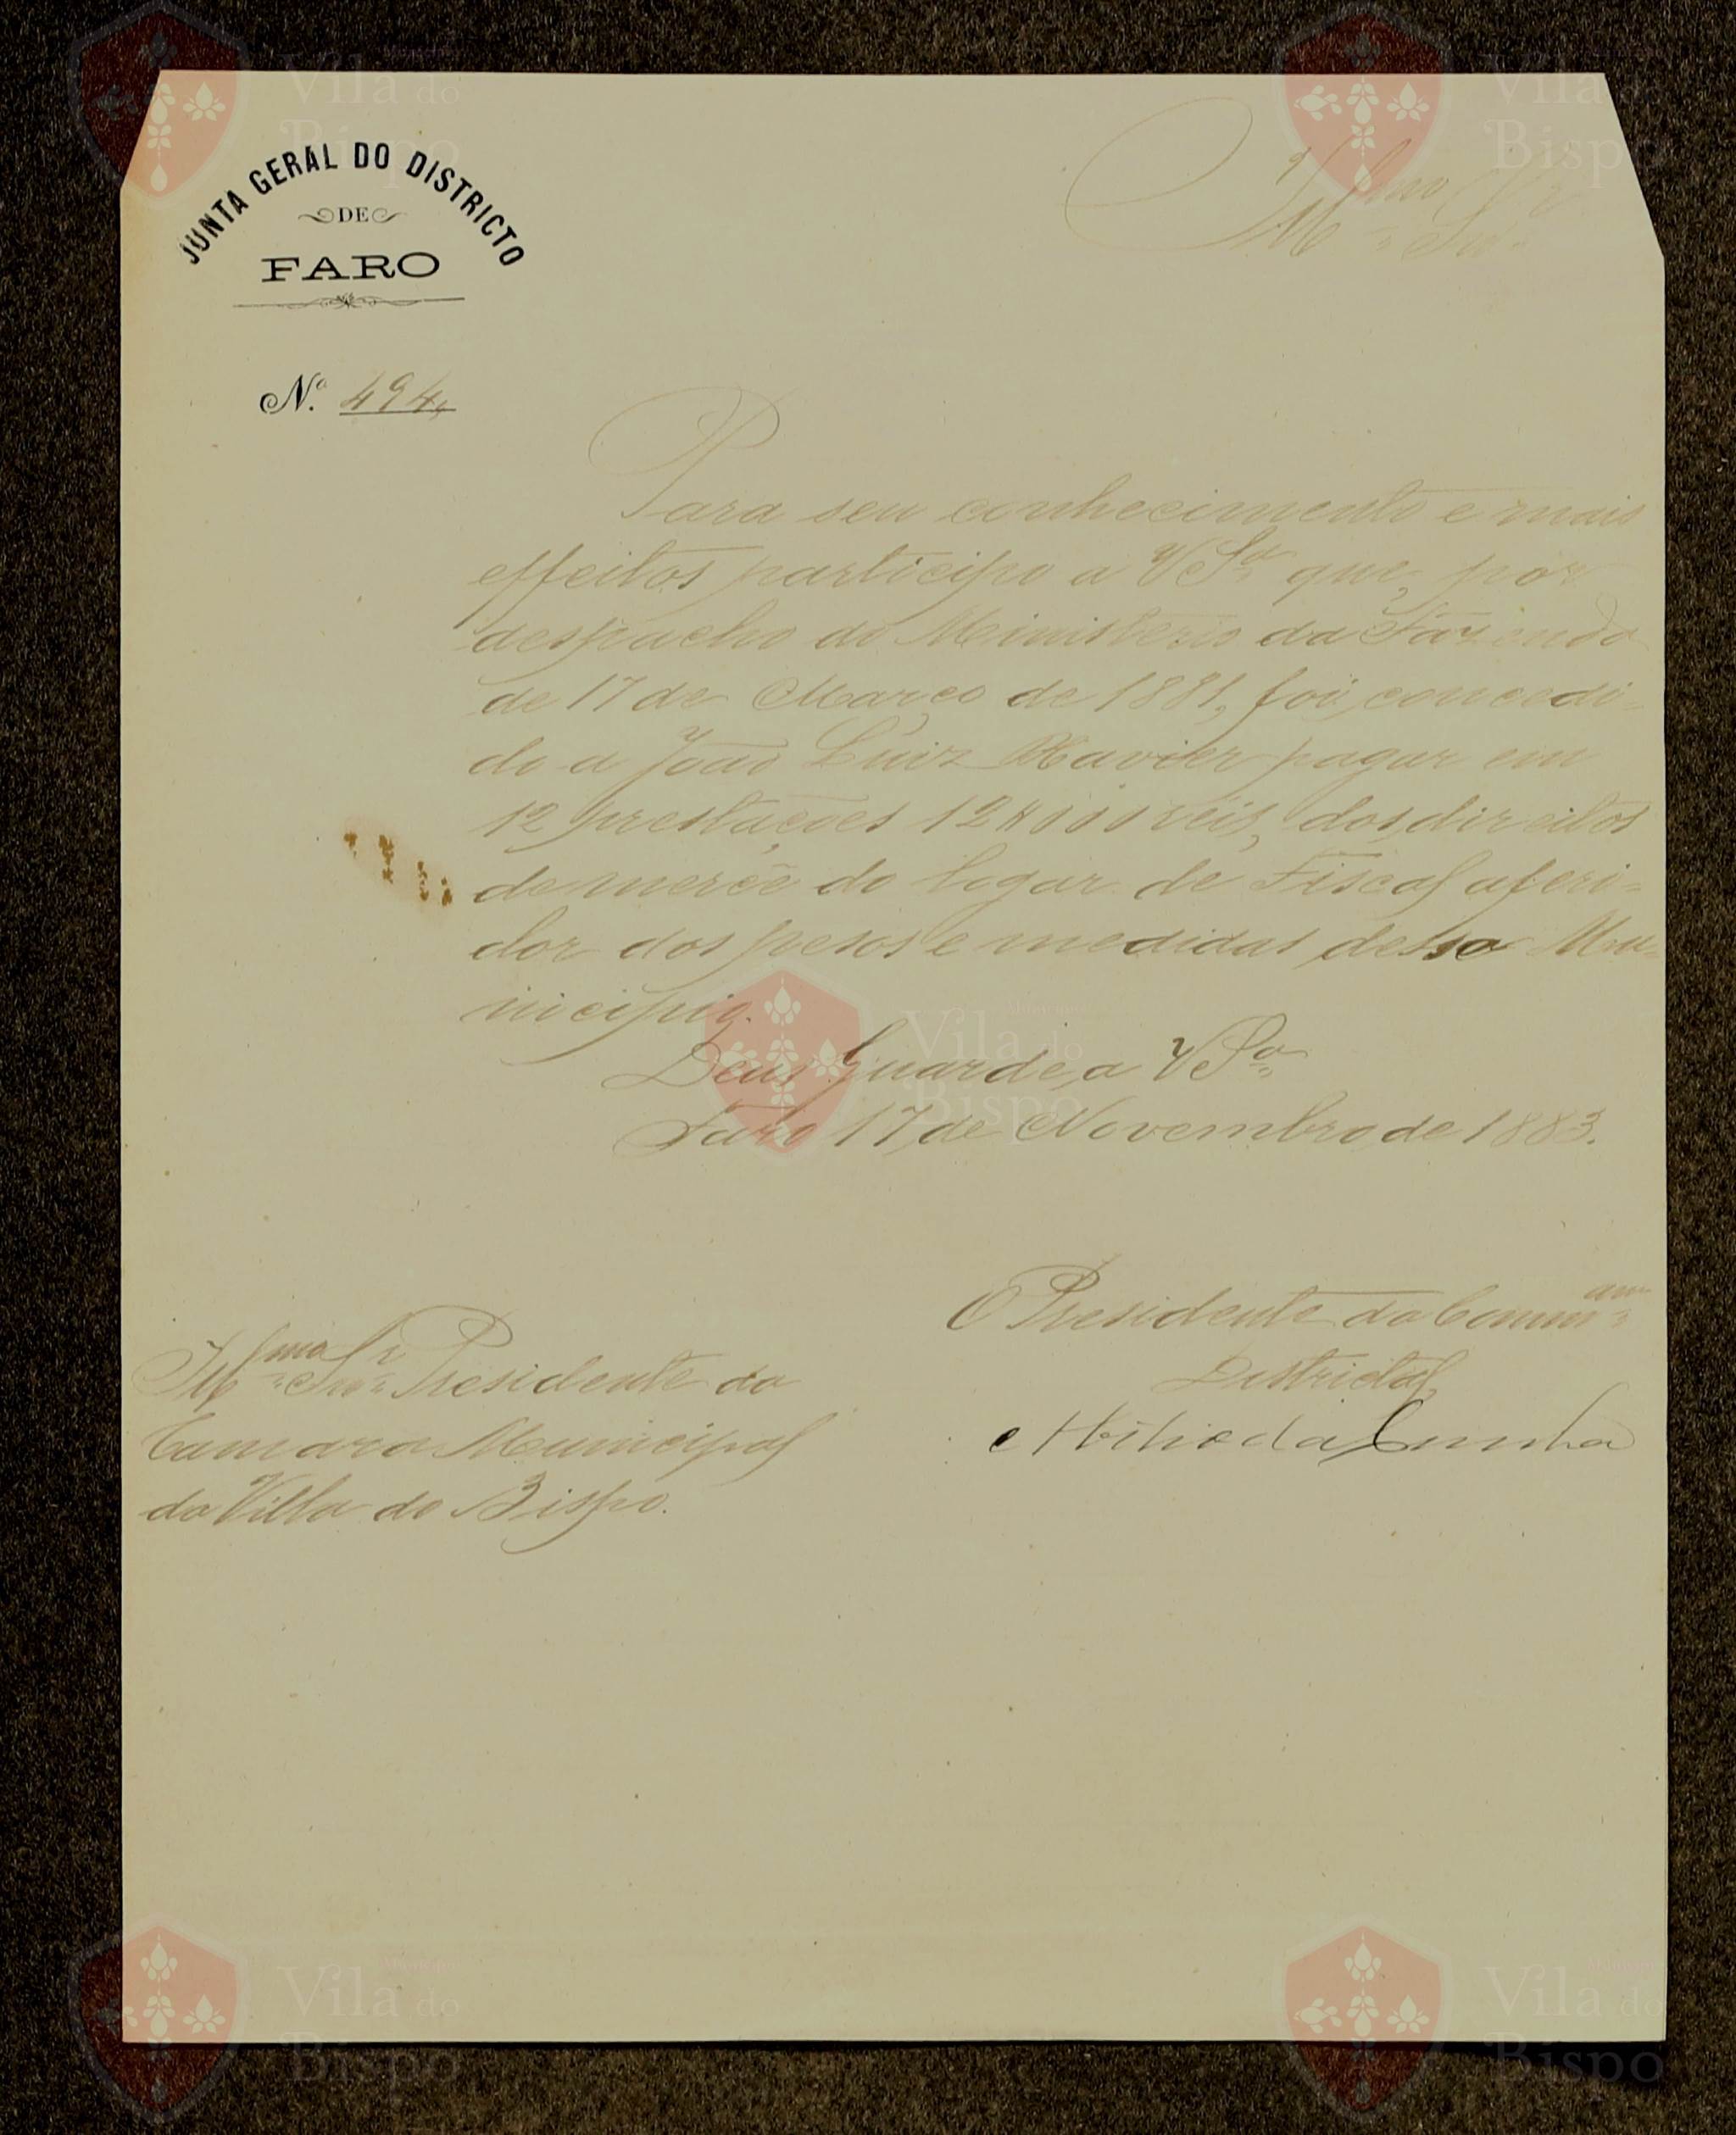 JUNTA GERAL DO DISTRICTO
DE
FARO
Illmo Snr
N.o 494
Para seu conhecimento e mais
effeitos participo a V Sa que, por
despacho do Ministerio da Fazenda
de 17 de Março de 1881, foi concedi-
do a João Luiz Xavier pagar em
12 prestações 12$000 reis, dos direitos
de mercê do logar de Fiscal aferi-
dor dos pesos e medidas desse Mu-
nicipio.
Deus Guarde a V Sa
Faro 17 de Novembro de 1883.
O Presidente da Commam
Districtal,
da Cunha
Illmo Snr Presidente da
Camara Municipal
da Villa do Bispo.
Vila do
Bispo
Vila do
Bispo
Vila do
Bispo
Vila do
Bispo
Vila do
Bispo